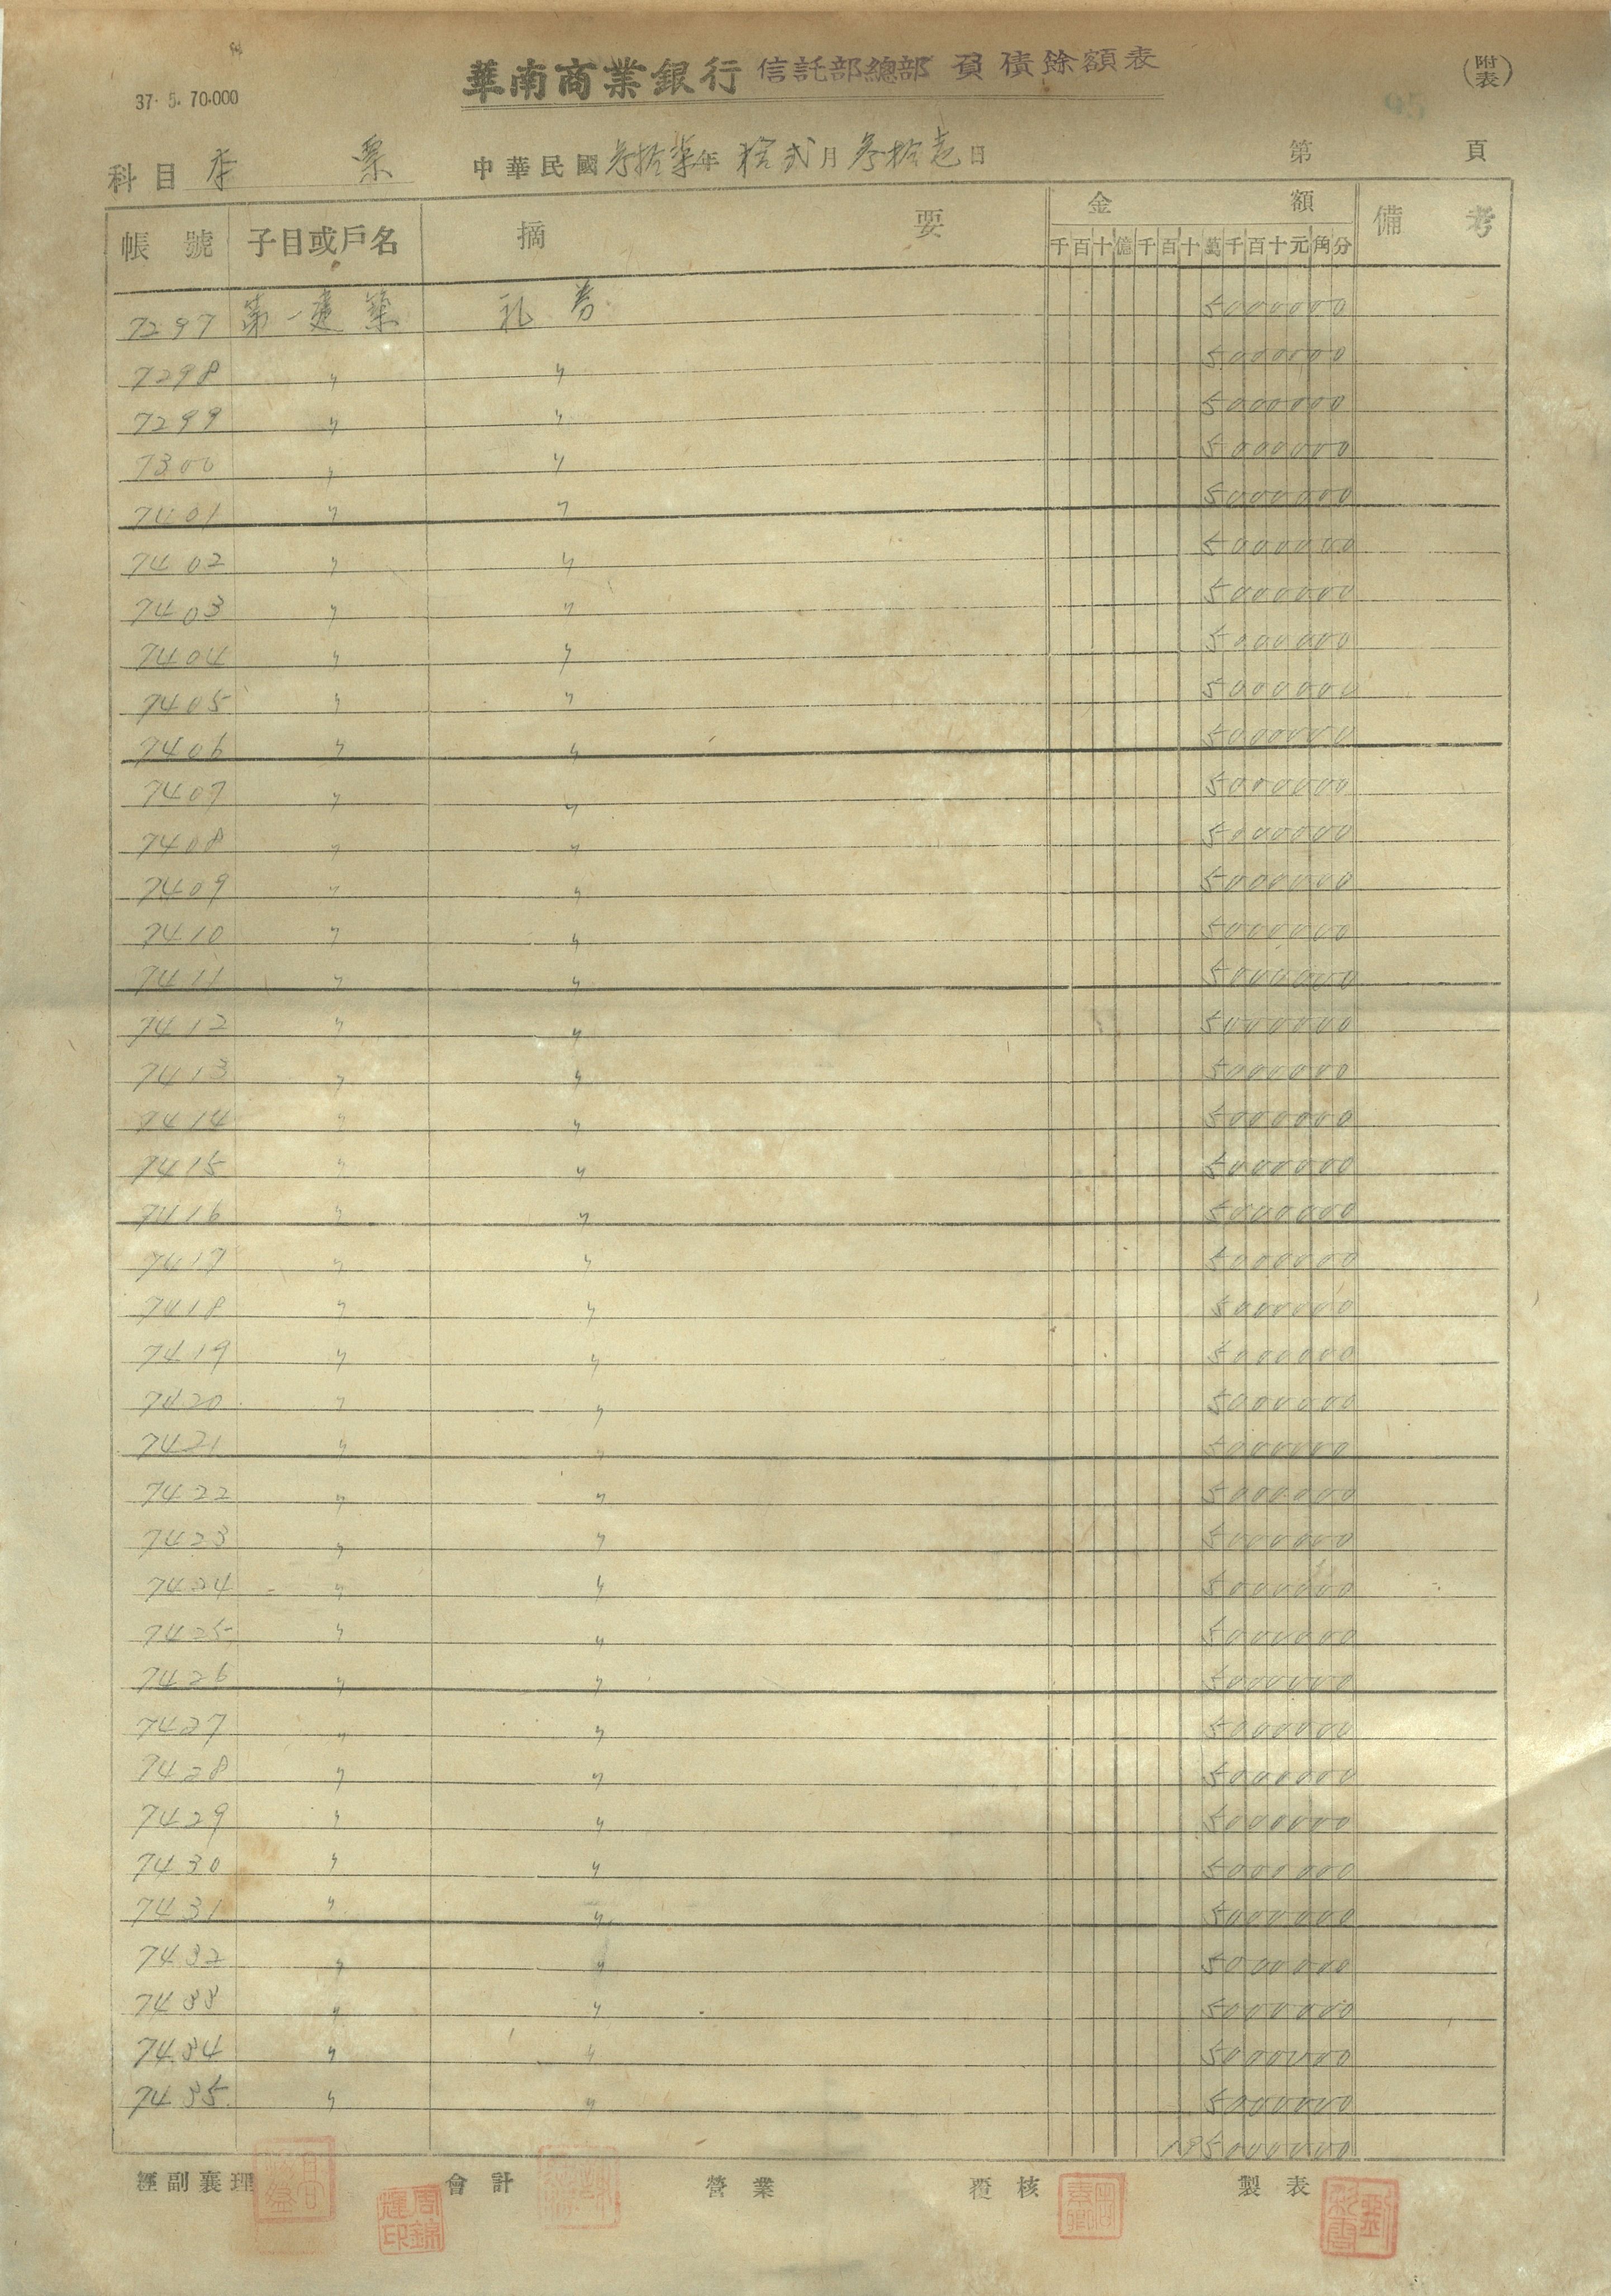 37. 5. 70.000
華南商業銀行 信託部總部 負債餘額表
(附表)
95
科目 本票 中華民國叁拾柒年拾弍月叁拾壱日 第 頁
帳號 子目或戶名 摘要 金額 備考
千百十億千百十萬千百十元角分
7297 第一建築 礼券 5000000
7298 〃 〃 5000000
7299 〃 〃 5000000
7300 〃 〃 5000000
7401 〃 〃 5000000
7402 〃 〃 5000000
7403 〃 〃 5000000
7404 〃 〃 5000000
7405 〃 〃 5000000
7406 〃 〃 5000000
7407 〃 〃 5000000
7408 〃 〃 5000000
7409 〃 〃 5000000
7410 〃 〃 5000000
7411 〃 〃 5000000
7412 〃 〃 5000000
7413 〃 〃 5000000
7414 〃 〃 5000000
7415 〃 〃 5000000
7416 〃 〃 5000000
7417 〃 〃 5000000
7418 〃 〃 5000000
7419 〃 〃 5000000
7420 〃 〃 5000000
7421 〃 〃 5000000
7422 〃 〃 5000000
7423 〃 〃 5000000
7424 〃 〃 5000000
7425 〃 〃 5000000
7426 〃 〃 5000000
7427 〃 〃 5000000
7428 〃 〃 5000000
7429 〃 〃 5000000
7430 〃 〃 5000000
7431 〃 〃 5000000
7432 〃 〃 5000000
7433 〃 〃 5000000
7434 〃 〃 5000000
7435 〃 〃 5000000
195000000
經副襄理 會計 營業 覆核 製表
周錦煌印
劉彩雲